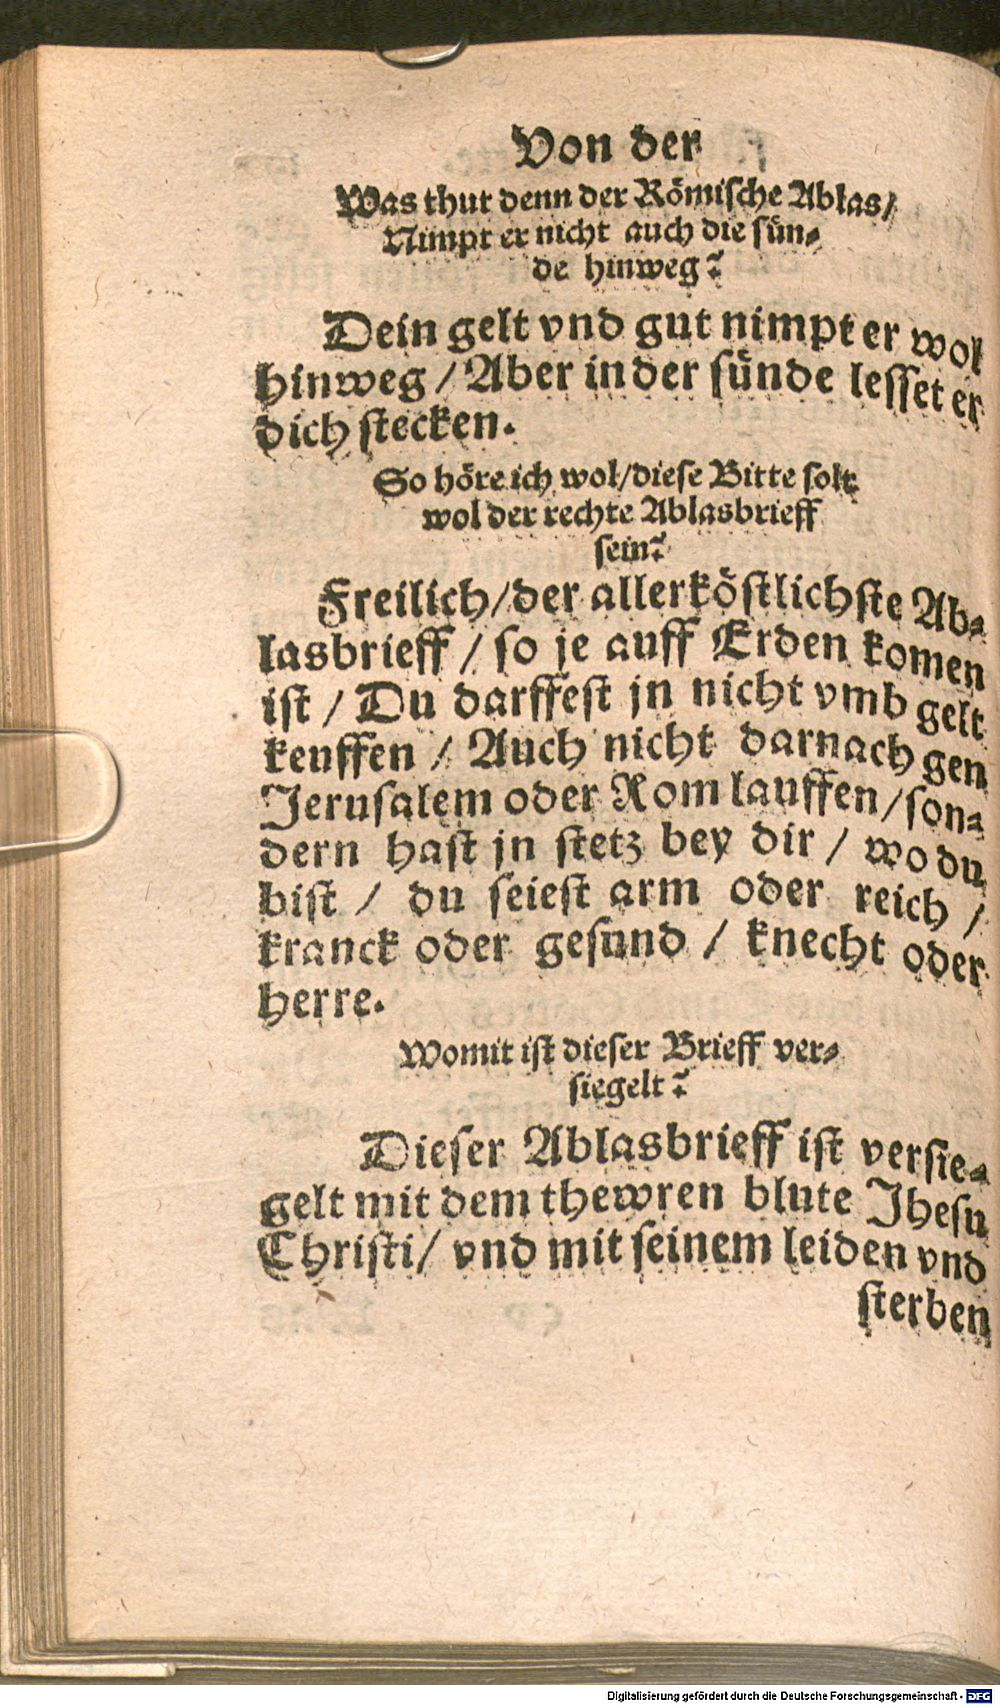 Von der
Was thut denn der Römische Ablas/
Nimpt er nicht auch die sün-
de hinweg?
Dein gelt vnd gut nimpt er wol
hinweg / Aber in der sünde lesset er
dich stecken.
So höre ich wol/diese Bitte solt
wol der rechte Ablasbrieff
sein?
Freilich/der allerköstlichste Ab-
lasbrieff / so je auff Erden komen
ist / Du darffest jn nicht vmb gelt
keuffen / Auch nicht darnach gen
Jerusalem oder Rom lauffen/son-
dern hast jn stetz bey dir / wo du
bist / du seiest arm oder reich /
kranck oder gesund / knecht oder
herre.
Womit ist dieser Brieff ver-
siegelt?
Dieser Ablasbrieff ist versie-
gelt mit dem thewren blute Jhesu
Christi/ vnd mit seinem leiden vnd
sterben
Digitalisierung gefördert durch die Deutsche Forschungsgemeinschaft - DFG